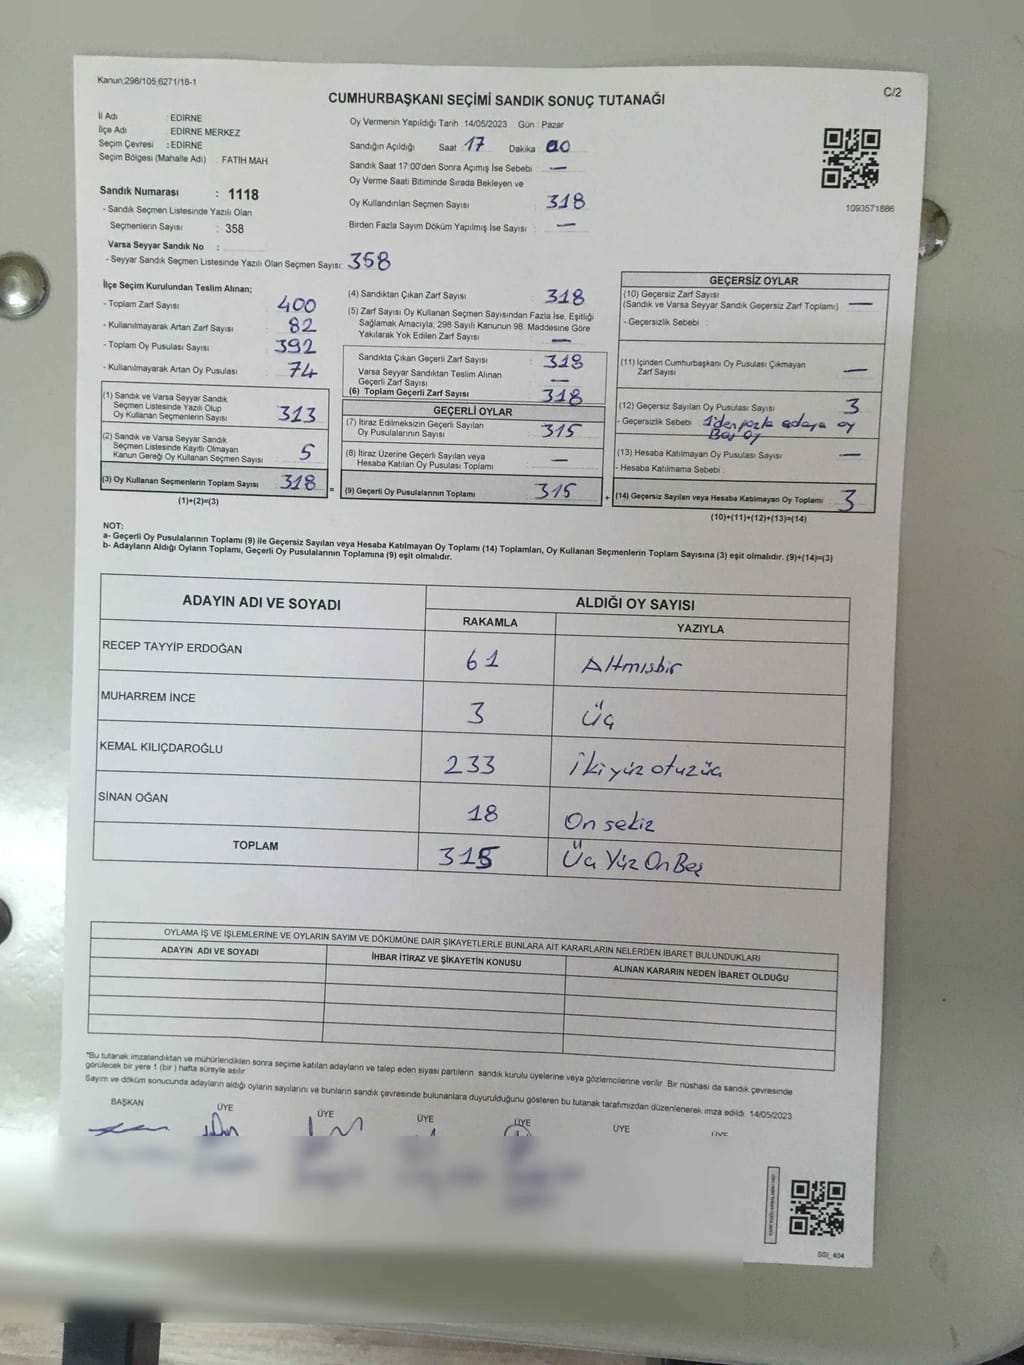 Kanun;298/105;6271/18-1
C/2
CUMHURBAŞKANI SEÇİMİ SANDIK SONUÇ TUTANAĞI
İl Adı : EDİRNE
İlçe Adı : EDİRNE MERKEZ
Seçim Çevresi : EDİRNE
Seçim Bölgesi (Mahalle Adı) : FATİH MAH
Sandık Numarası : 1118
- Sandık Seçmen Listesinde Yazılı Olan
Seçmenlerin Sayısı : 358
Varsa Seyyar Sandık No :
- Seyyar Sandık Seçmen Listesinde Yazılı Olan Seçmen Sayısı: 358
Oy Vermenin Yapıldığı Tarih :14/05/2023 Gün : Pazar
Sandığın Açıldığı Saat 17 Dakika 00
Sandık Saat 17:00'den Sonra Açımış İse Sebebi : —
Oy Verme Saati Bitiminde Sırada Bekleyen ve
Oy Kullandırılan Seçmen Sayısı : 318
Birden Fazla Sayım Döküm Yapılmış İse Sayısı : —
1093571886
İlçe Seçim Kurulundan Teslim Alınan;
- Toplam Zarf Sayısı 400
- Kullanılmayarak Artan Zarf Sayısı 82
- Toplam Oy Pusulası Sayısı 392
- Kullanılmayarak Artan Oy Pusulası 74
(1) Sandık ve Varsa Seyyar Sandık
Seçmen Listesinde Yazılı Olup
Oy Kullanan Seçmenlerin Sayısı 313
(2) Sandık ve Varsa Seyyar Sandık
Seçmen Listesinde Kayıtlı Olmayan
Kanun Gereği Oy Kullanan Seçmen Sayısı 5
(3) Oy Kullanan Seçmenlerin Toplam Sayısı 318
(1)+(2)=(3)
(4) Sandıktan Çıkan Zarf Sayısı 318
(5) Zarf Sayısı Oy Kullanan Seçmen Sayısından Fazla İse, Eşitliği
Sağlamak Amacıyla; 298 Sayılı Kanunun 98. Maddesine Göre
Yakılarak Yok Edilen Zarf Sayısı —
Sandıkta Çıkan Geçerli Zarf Sayısı 318
Varsa Seyyar Sandıktan Teslim Alınan
Geçerli Zarf Sayısı —
(6) Toplam Geçerli Zarf Sayısı 318
GEÇERLİ OYLAR
(7) İtiraz Edilmeksizin Geçerli Sayılan
Oy Pusulalarının Sayısı 315
(8) İtiraz Üzerine Geçerli Sayılan veya
Hesaba Katılan Oy Pusulası Toplamı —
= (9) Geçerli Oy Pusulalarının Toplamı 315 +
GEÇERSİZ OYLAR
(10) Geçersiz Zarf Sayısı
(Sandık ve Varsa Seyyar Sandık Geçersiz Zarf Toplamı) —
- Geçersizlik Sebebi :
(11) İçinden Cumhurbaşkanı Oy Pusulası Çıkmayan
Zarf Sayısı —
(12) Geçersiz Sayılan Oy Pusulası Sayısı 3
- Geçersizlik Sebebi : 1'den fazla adaya oy
Boş Oy
(13) Hesaba Katılmayan Oy Pusulası Sayısı —
- Hesaba Katılmama Sebebi :
(14) Geçersiz Sayılan veya Hesaba Katılmayan Oy Toplamı 3
(10)+(11)+(12)+(13)=(14)
NOT:
a- Geçerli Oy Pusulalarının Toplamı (9) ile Geçersiz Sayılan veya Hesaba Katılmayan Oy Toplamı (14) Toplamları, Oy Kullanan Seçmenlerin Toplam Sayısına (3) eşit olmalıdır. (9)+(14)=(3)
b- Adayların Aldığı Oyların Toplamı, Geçerli Oy Pusulalarının Toplamına (9) eşit olmalıdır.
ADAYIN ADI VE SOYADI ALDIĞI OY SAYISI
RAKAMLA YAZIYLA
RECEP TAYYİP ERDOĞAN 61 Altmışbir
MUHARREM İNCE 3 Üç
KEMAL KILIÇDAROĞLU 233 İkiyüz otuzüç
SİNAN OĞAN 18 On sekiz
TOPLAM 315 Üç Yüz On Beş
OYLAMA İŞ VE İŞLEMLERİNE VE OYLARIN SAYIM VE DÖKÜMÜNE DAİR ŞİKAYETLERLE BUNLARA AİT KARARLARIN NELERDEN İBARET BULUNDUKLARI
ADAYIN ADI VE SOYADI İHBAR İTİRAZ VE ŞİKAYETİN KONUSU ALINAN KARARIN NEDEN İBARET OLDUĞU
"Bu tutanak imzalandıktan ve mühürlendikten sonra seçime katılan adayların ve talep eden siyasi partilerin sandık kurulu üyelerine veya gözlemcilerine verilir. Bir nüshası da sandık çevresinde
görülecek bir yere 1 (bir ) hafta süreyle asılır
Sayım ve döküm sonucunda adayların aldığı oyların sayılarını ve bunların sandık çevresinde bulunanlara duyurulduğunu gösteren bu tutanak tarafımızdan düzenlenerek imza edildi. 14/05/2023
BAŞKAN ÜYE ÜYE ÜYE ÜYE ÜYE ÜYE
SSI_404